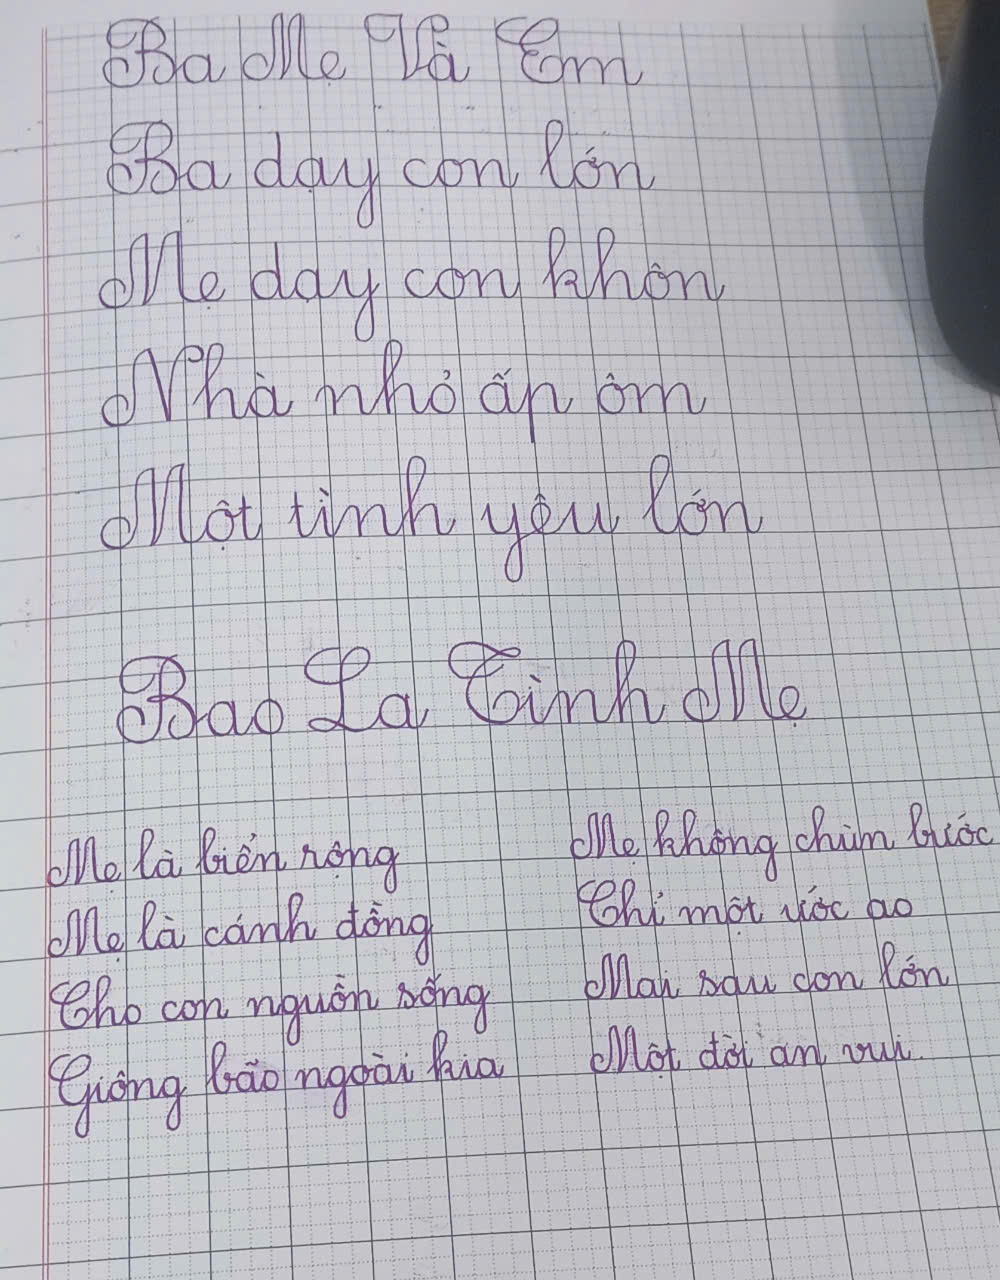 Ba Mẹ Và Em
Ba dạy con lớn
Mẹ dạy con khôn
Nhà nhỏ ấp ôm
Một tình yêu lớn
Bao La Tình Mẹ
Mẹ là biển rộng
Mẹ là cánh đồng
Cho con nguồn sống
Giông bão ngoài kia
Mẹ không chùn bước
Chỉ một ước ao
Mai sau con lớn
Một đời an vui.